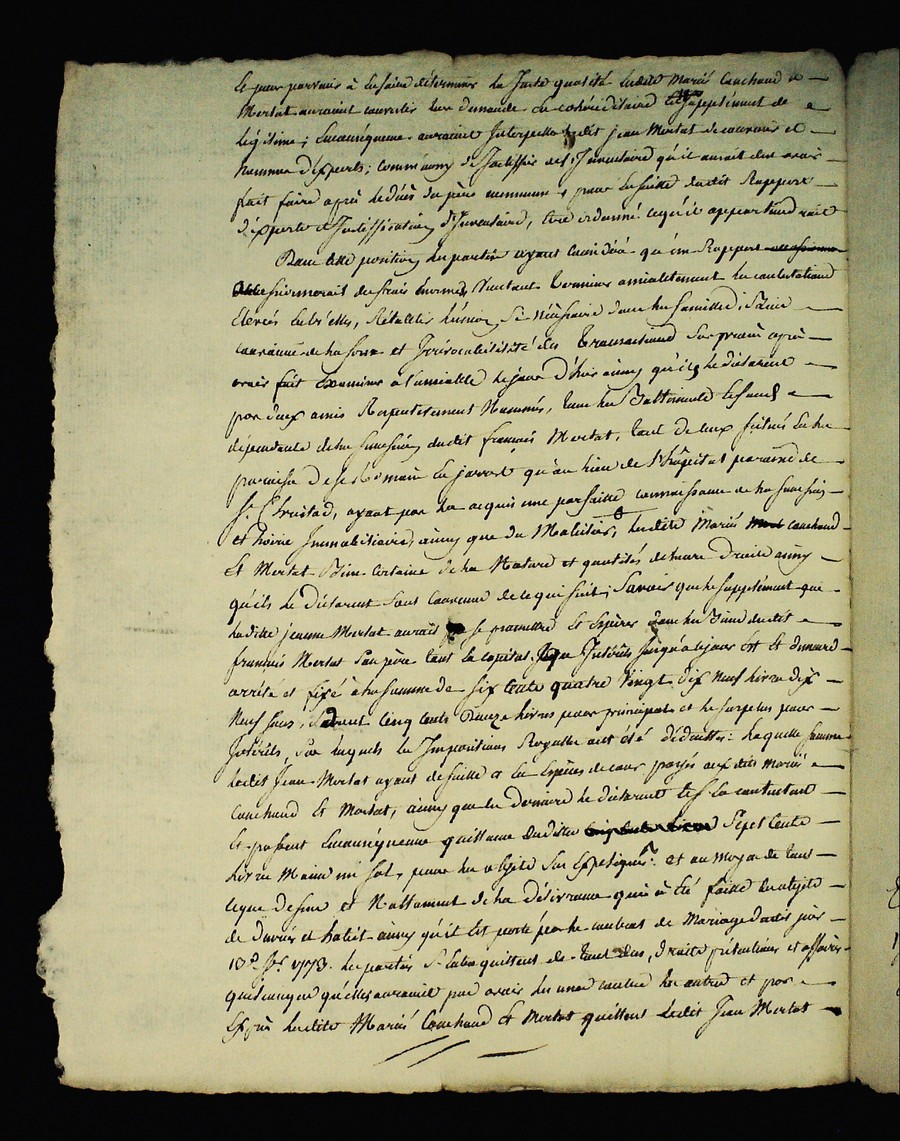 et pour parvenir à en faire déterminer la Juste quotité lesdits Mariés Couchaud et
Mertat auraient converti leur demande en cohéréditaire en supplément de
légitime; En conséquence auraient Interpellé ledit jean Mertat de convenir et
Nommer d'Experts; comme aussy de Justiffier de l'Inventaire qu'il aurait dû avoir
fait faire après le décès du père commun pour ensuitte dudit Rapport
d'experts et Justiffication d'Inventaire, être ordonné ce qu'il appartiendrait
Dans cette position les parties ayant considéré qu'un Rapport
occasionnerait des frais Enormes, Voulant Terminer amiablement les contestations
Elevées entr'elles, Rétablir l'union si nécessaire dans les familles; Bien
convaincus de la force et Irrévocabilité des Transactions sur procès après
avoir fait Examiner à l'amiable le jour d'hier ainsy qu'ils le déclarent
par deux amis Respectivement Nommés, tous les Battiments et fonds
dépendants de la succession dudit françois Mertat, tant de ceux situés en la
paroisse de st Romain en jarret qu'au lieu de l'hôpital paroisse de
St. Christod, ayant par là acquis une parfaitte connoissance de la succession
et hoirie Immobiliaire, ainsy que du Mobilier, lesdits Mariés Couchaud
Et Mertat Bien certains de la Nature et quotités de leurs droits ainsy
qu'ils le déclarent sont convenus de ce qui suit; Savoir que le supplément que
laditte jeanne Mertat aurait pu se promettre Et Espérer dans les Biens dudit
françois Mertat son père tant en capital que Intérêts jusqu'à ce jour Est Et demeure
arrêté et fixé à la somme de six Cents quatre Vingt dix Neuf livres dix
Neuf sous, savoir Cinq Cents Douze livres pour principal et le surplus pour
Intérêts, sur lesquels les Impositions Royalles ont été déduittes: laquelle somme
ledit Jean Mertat ayant desuitte et en Espèces de cour payée aux dits Mariés
Couchaud Et Mertat, ainsy que ces derniers le déclarent ils s'en contentent
Et passent Enconséquence quittance desdittes Sept Cents
livres Moins un sol, pour les objets sus Expliqués. et au moyen de tout
ce que dessus et Notamment de la délivrance qui a été faitte en objets
de Denrées et habits ainsy qu'il Est porté par le contrat de Mariage datté jour
10e. 1773. les parties s'entrequittent de tous dus, droits prétentions et affaires
quelconques qu'elles auraient pu avoir les unes contre les autres et par
Exprès lesdits Mariés Couchaud Et Mertat quittent ledit Jean Mertat